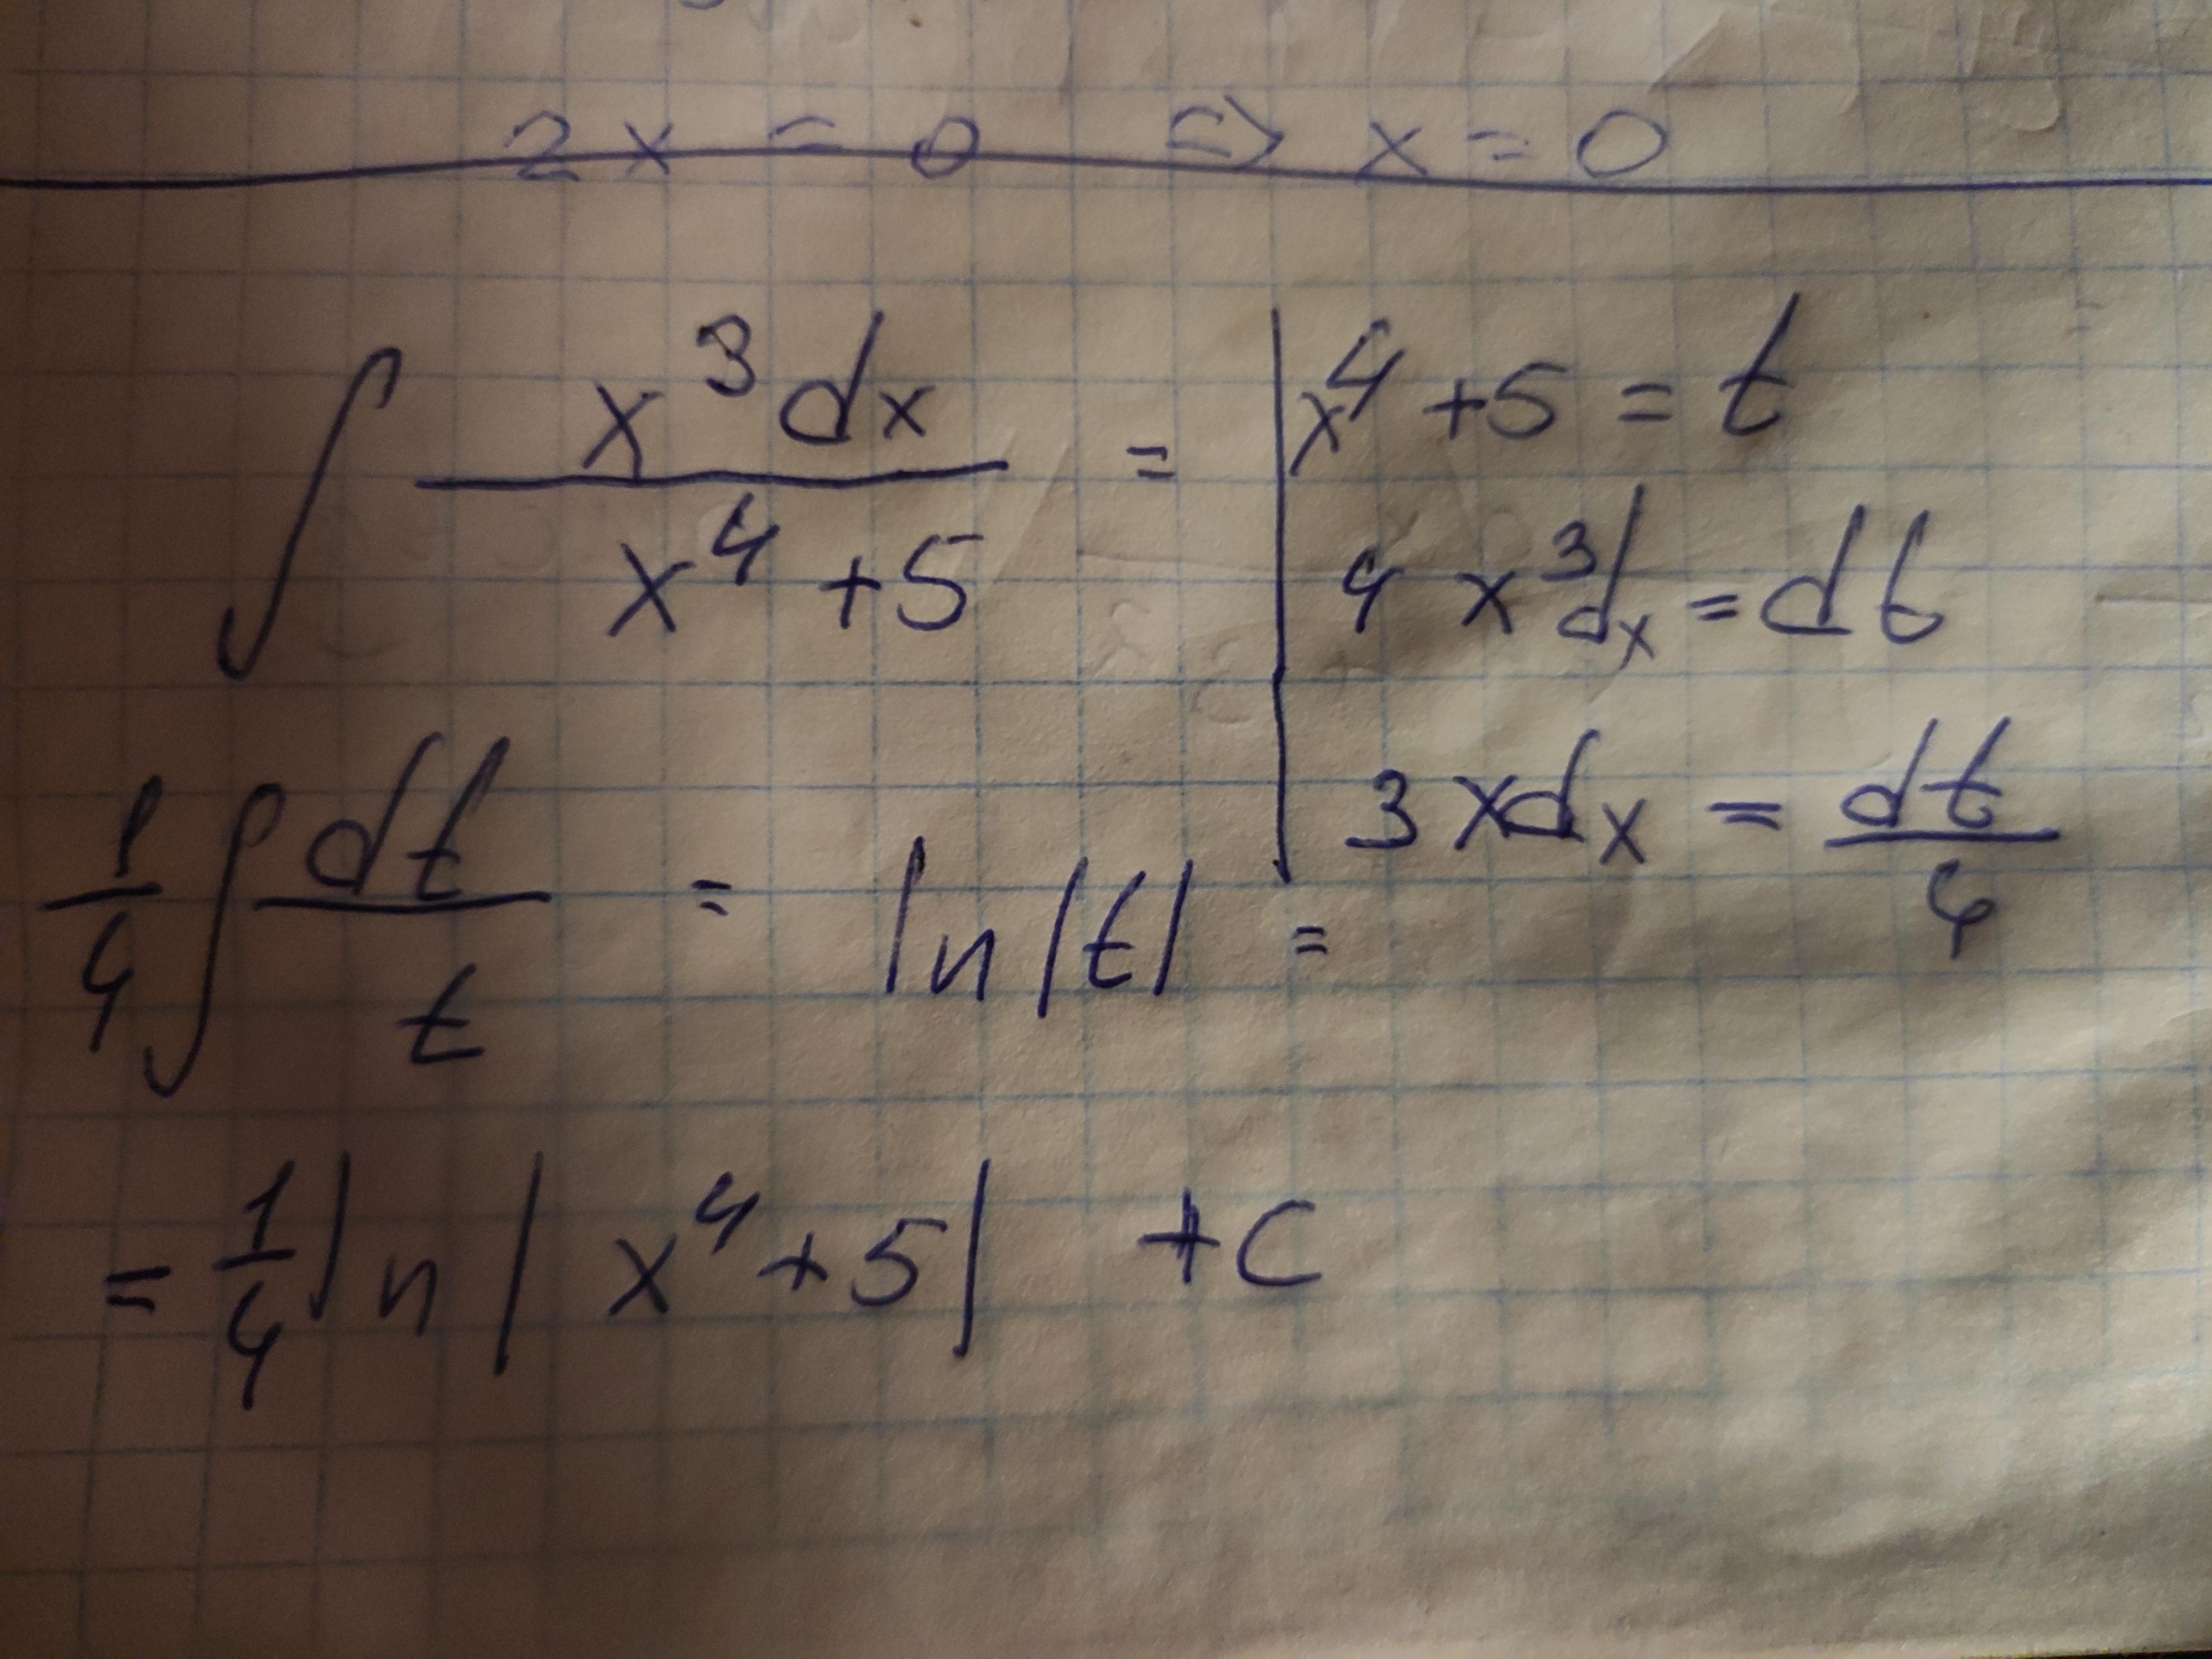 2x = 0 => x = 0
∫ x³dx / x⁴+5 = | x⁴+5 = t
4x³dx = dt
3xdx = dt/4
1/4 ∫ dt/t = ln|t| =
= 1/4 ln| x⁴+5| +C